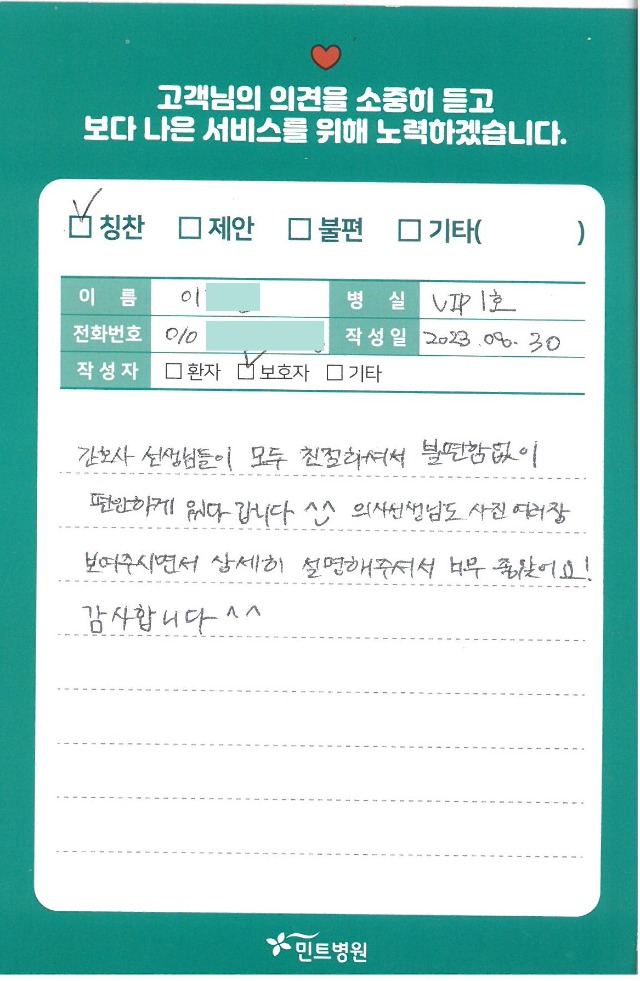 고객님의 의견을 소중히 듣고
보다 나은 서비스를 위해 노력하겠습니다.
☑ 칭찬 ☐ 제안 ☐ 불편 ☐ 기타( )
이 름 이 병 실 VIP 1호
전화번호 010 작성일 2023.08.30
작성자 ☐ 환자 ☑ 보호자 ☐ 기타
간호사 선생님들이 모두 친절하셔서 불편함없이
편안하게 있다 갑니다 ^^ 의사선생님도 사진 여러장
보여주시면서 상세히 설명해주셔서 너무 좋았어요!
감사합니다 ^^
민트병원